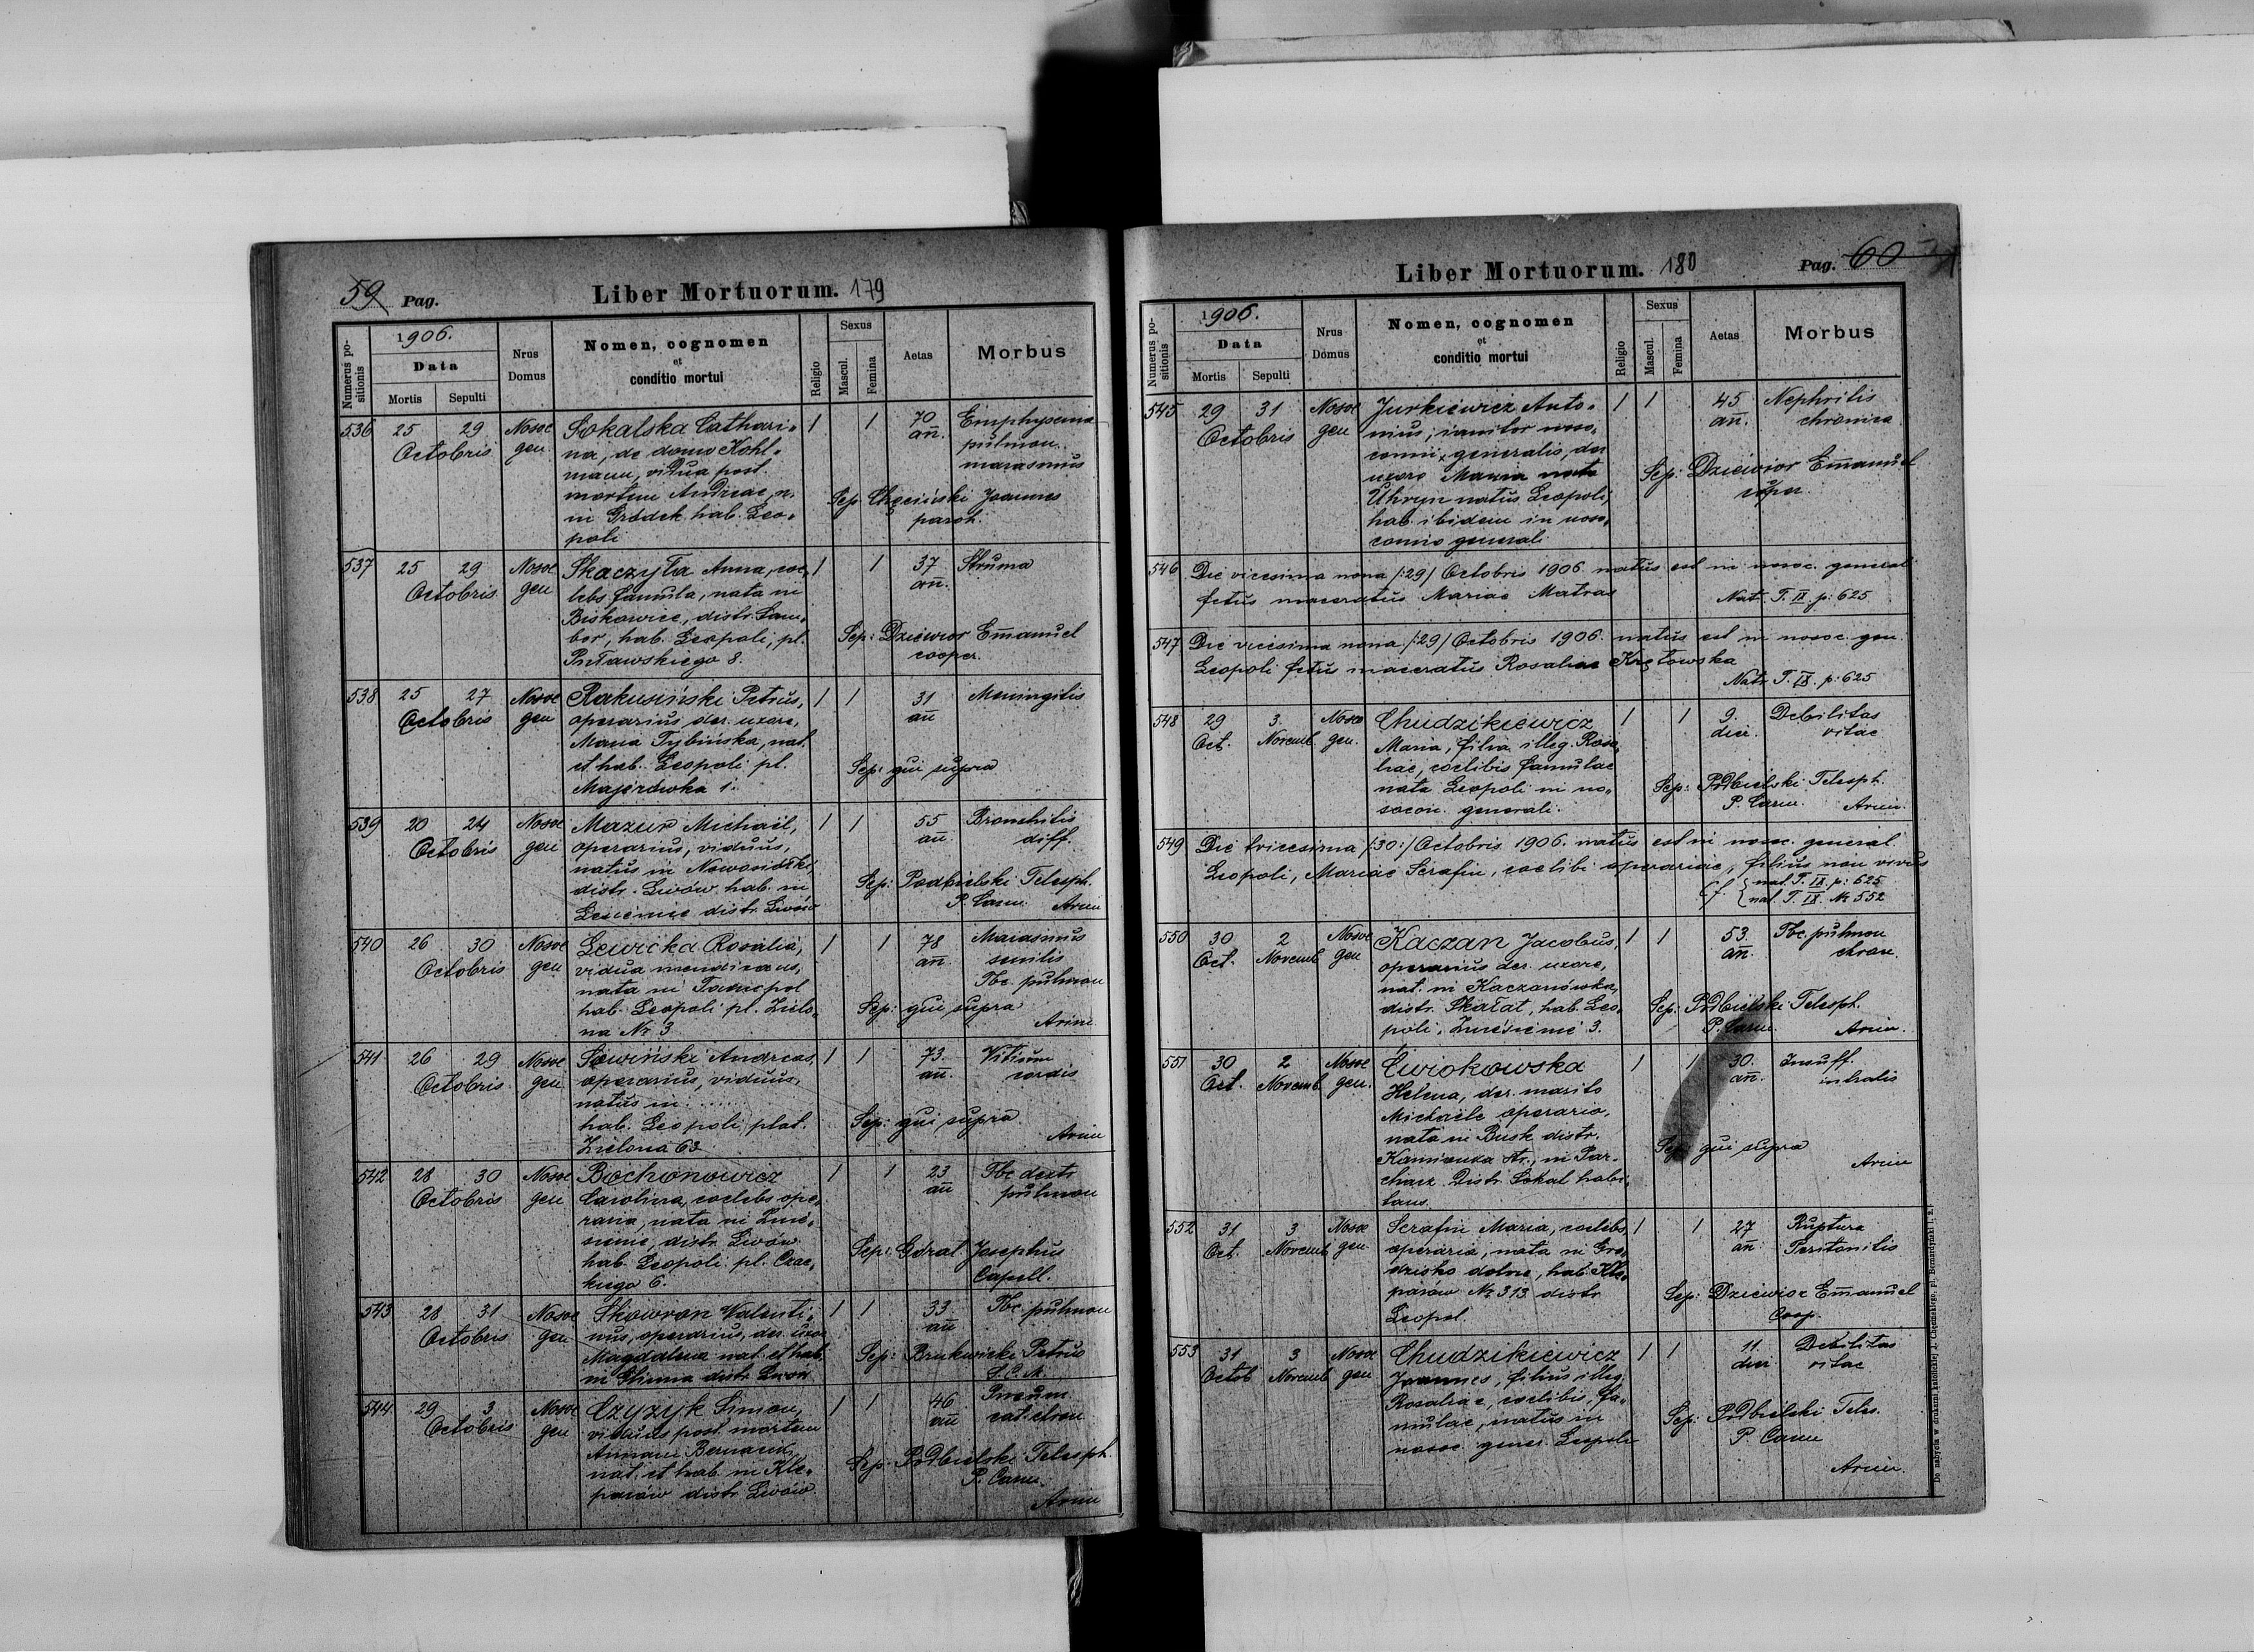 59 Pag.
Liber Mortuorum. 179
Numerus positionis
1906.
Data
Mortis
Sepulti
Nrus Domus
Nomen, cognomen
et
conditio mortui
Religio
Sexus
Mascul.
Femina
Aetas
Morbus
536 25 29 Nosoc Sokalska Cathari- 1 1 70 Emphysema
Octobris gen. na, de domo Kohl- an̄. pulmon.
mann, vidua post marasmus
mortem Andreae, n.
in Gródek, hab. Leo- Sep. Chęciński Joannes
poli paroh.
537 25 29 Nosoc Skaczyła Anna, coe- 1 1 37 Struma
Octobris gen lebs famula, nata in an̄.
Biskowice, distr. Sam-
bor, hab. Leopoli, pl. Sep: Dziewior Em̄anuel
Puławskiego 8. cooper.
538 25 27 Nosoc Rakusiński Petrus, 1 1 31 Meningitis
Octobris gen operarius der. uxore, an̄
Maria Tybińska, nat.
et hab. Leopoli pl. Sep: qui supra
Majerówka 1.
539 20 24 Nosoc Mazur Michaël, 1 1 55 Bronchitis
Octobris gen operarius, viduus, an̄. diff.
natus in Nowosiółki,
distr. Lwów hab. in Sep: Podbielski Telesph.
Lesienice distr. Lwów P. Carm. Arm
540 26 30 Nosoc Lewicka Rosalia, 1 1 78 Marasmus
Octobris gen vidua mendicans, an̄. senilis
nata in Tarnopol Tbc. pulmon
hab. Leopoli pl. Zielo- Sep: qui supra
na Nr 3 Arm.
541 26 29 Nosoc Sawiński Andreas, 1 1 73. Vitium
Octobris gen. operarius, viduus, an̄. cordis
natus in ......
hab. Leopoli, plat. Sep: qui supra
Zielona 63 Arm
542 28 30 Nosoc Bochonowicz 1 1 23 Tbc dextr
Octobris gen Carolina, coelebs ope- an̄ pulmon
raria, nata in Znie-
sienie, distr. Lwów
hab. Leopoli. pl. Czac- Sep: Góral Josephus
kiego 6. Capell.
543 28 31 Nosoc Skowron Valenti- 1 1 33 Tbc. pulmon
Octobris gen nus, operarius, der. uxor an̄
Magdalena nat. et hab. Sep: Brukwicki Petrus
in Glinna distr. Lwów S. C. M.
544 29 3 Nosoc Czyzyk Simon, 1 1 46 Pneum.
Octobris gen viduus post mortem an̄ cat. chron
Annam Bernacud,
nat. et hab. in Kle- Sep: Podbielski Telesph.
parów distr. Lwów. P. Carm. Arm
Liber Mortuorum. 180
Pag. 60
Numerus positionis
1906.
Data
Mortis
Sepulti
Nrus Domus
Nomen, cognomen
et
conditio mortui
Religio
Sexus
Mascul.
Femina
Aetas
Morbus
545 29 31 Nosoc Jurkiewicz Anto- 1 1 45 Nephritis
Octobris gen nius, ianitor noso- an̄. chronica
comii generalis, der
uxore Maria nata Sep: Dziewior Em̄anuel
Uhryn natus Leopoli,
hab. ibidem in noso-
comio generali
546 Die vicesima nona /:29/ Octobris 1906 natus est in nosoc. general
fetus maceratus Mariae Matras Nat. T. IX p: 625
547 Die vicesima nona /:29/ Octobris 1906. natus est in nosoc. gen.
Leopoli fetus maceratus Rosaliae Krętowska
Nat. T. IX. p: 625
548 29 3. Nosoc Chudzikiewicz 1 1 9. Debilitas
Oct. Novemb. gen. Maria, filia illeg. Rosa- dier. vitae
liae, coelibis famulae
nata Leopoli in no- Sep: Podbielski Telesph.
socon. generali. P. Carm. Arm.
549 Die tricesima /:30:/ Octobris 1906. natus est in nosoc. general.
Leopoli, Mariae Serafin, coelibi operariae, filius non vivus
Cf. { nat. T. IX. p: 625
nat. T. IX. Nr 552
550 30 2 Nosoc Kaczan Jacobus, 1 1 53. Tbc. pulmon
Oct. Novemb gen operarius der. uxore, an̄. chron.
nat. in Kaczanówka,
distr. Skałat, hab. Leo- Sep: Podbielski Telesph.
poli, Zniesienie 3. P. Carm. Arm.
551 30 2 Nosoc Ćwiokowska 1 1 30. Insuff.
Oct. Novemb. gen. Helena, der. marito an̄. mitralis
Michaële operario,
nata in Busk distr.
Kamionka str., in Par- Sep: qui supra
chacz Distr. Sokal habi- Arm
tans
552 31 3 Nosoc Serafin Maria, coelebs, 1 1 27 Ruptura
Oct. Novemb gen. operaria, nata in Gro- an̄. Peritonitis
dzisko dolne, hab. Kle-
parów Nr 313 distr. Sep: Dziewior Em̄anuel
Leopol. Coop.
553 31 3 Nosoc Chudzikiewicz 1 1 11. Debilitas
Octob Novemb gen Joannes, filius illeg. dier vitae
Rosaliae, coelibis, fa-
mulae, natus in Sep: Podbielski Teles.
nosoc. gener. Leopoli P. Carm
Arm.
Do nabycia w drukarni katolickiej J. Chęcińskiego, pl. Bernardyński l. 2.